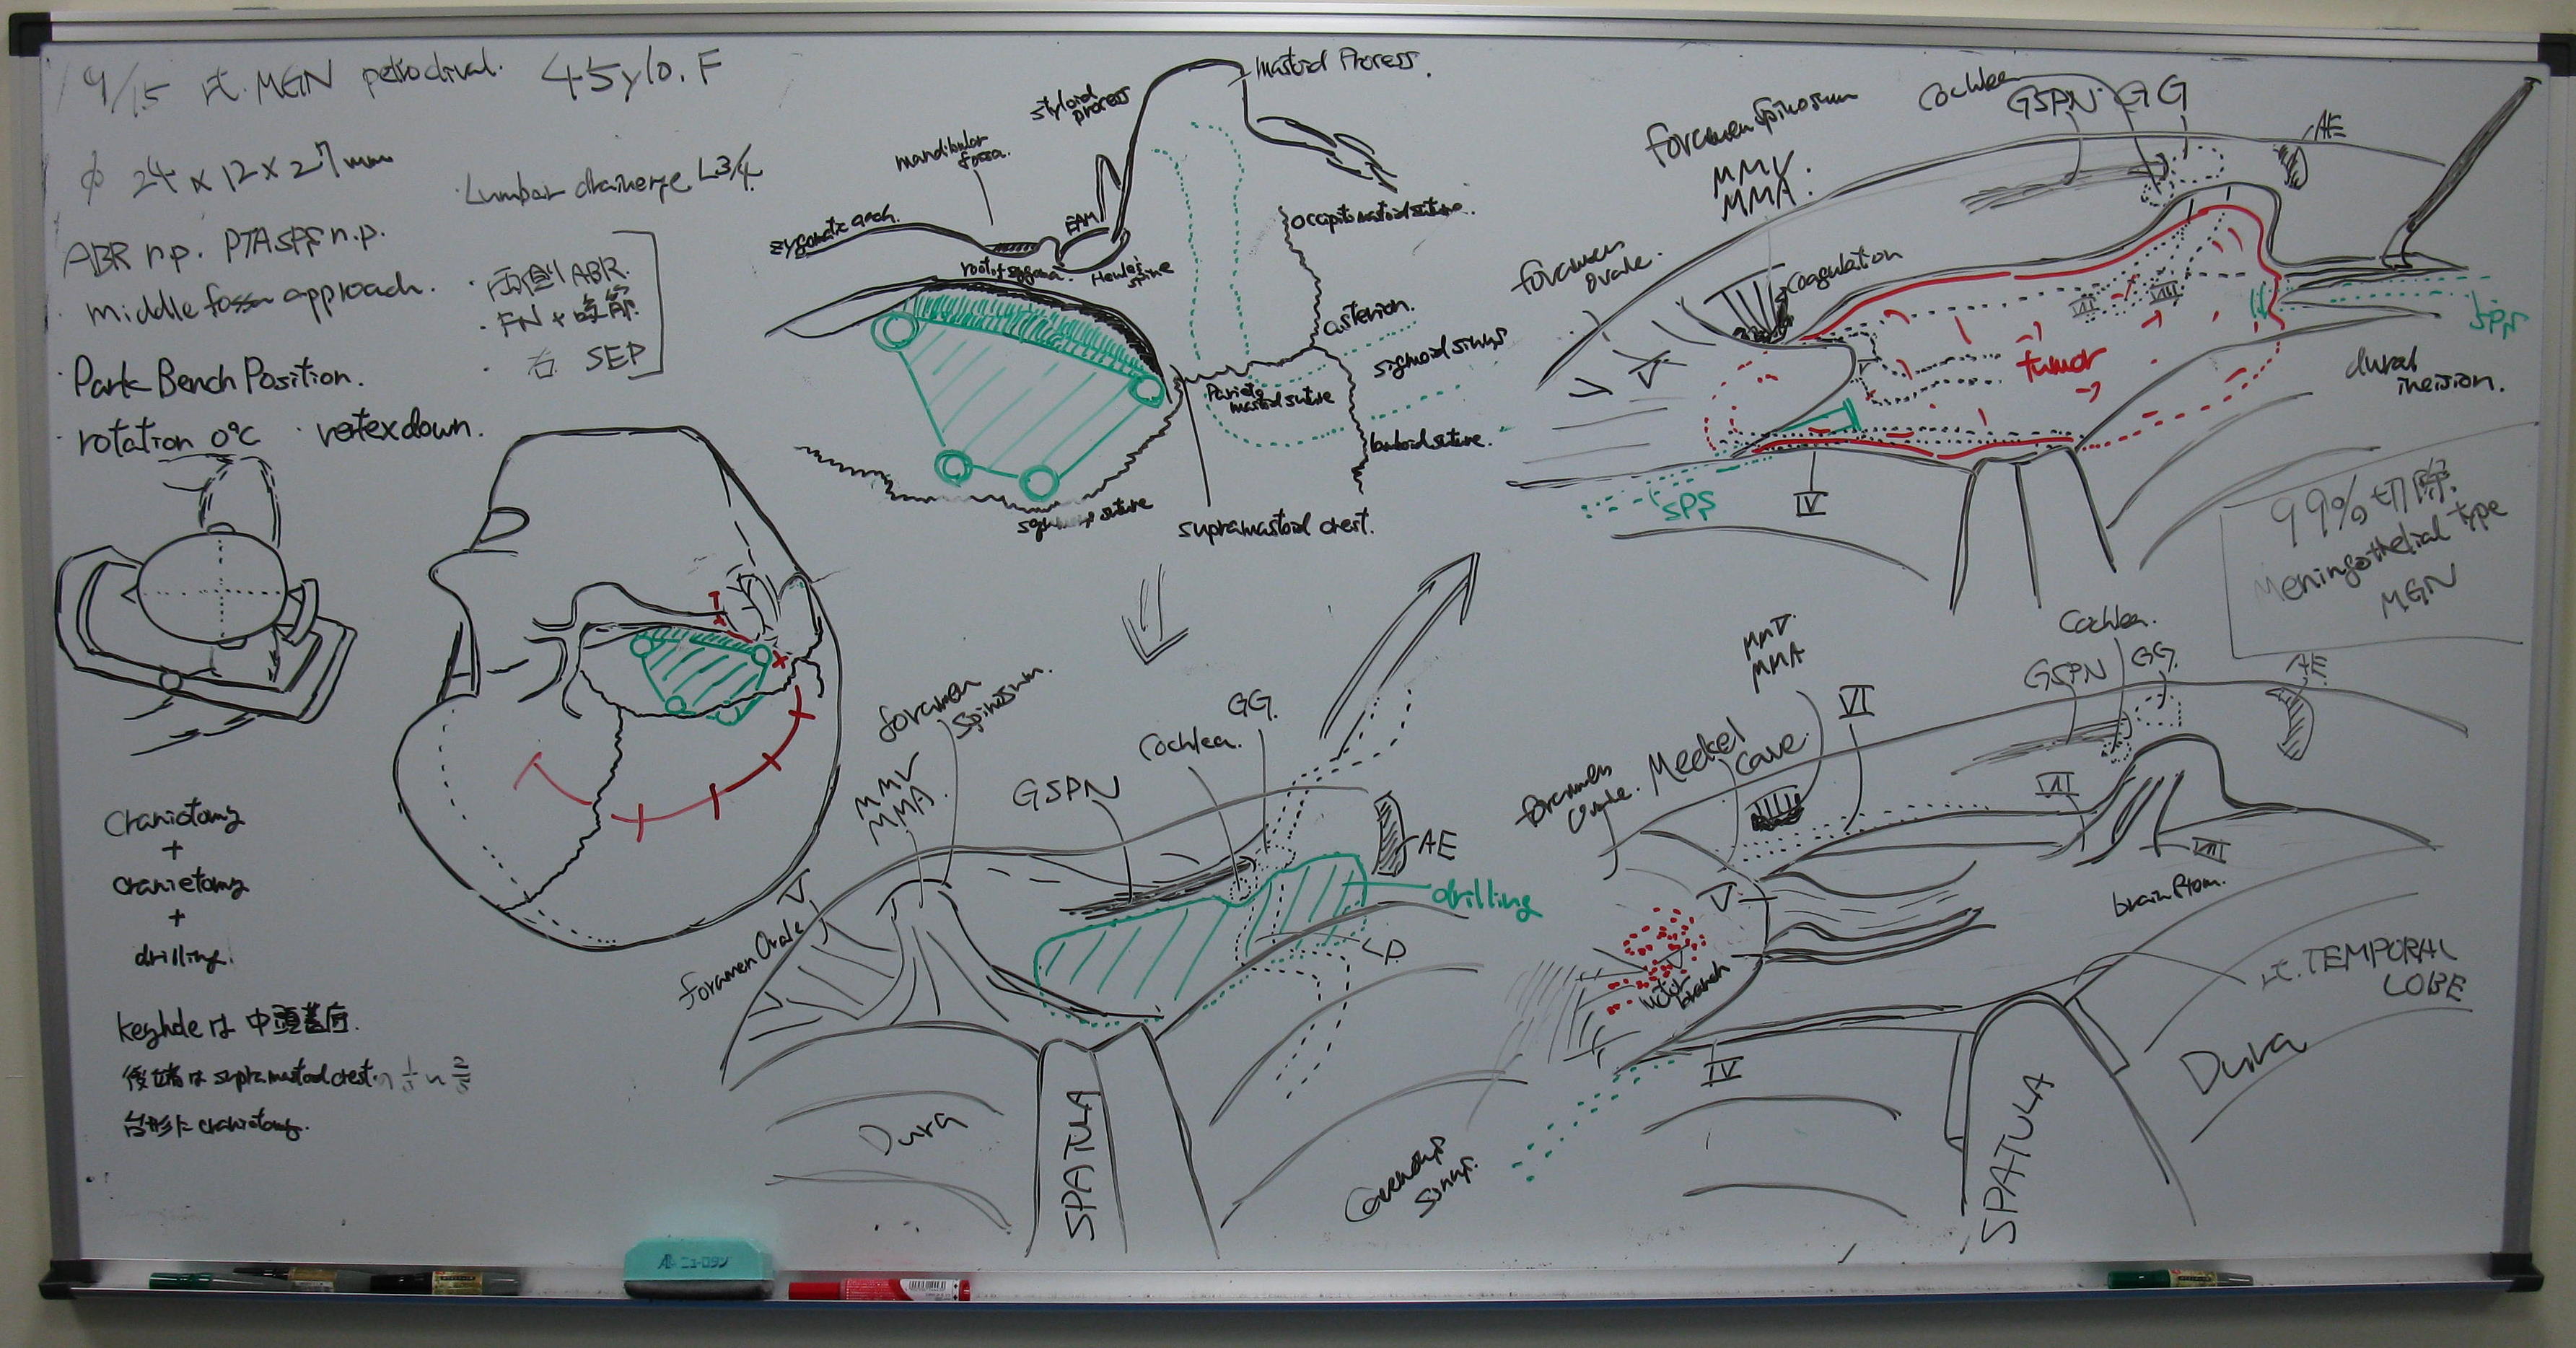 9/15 Lt. MGN petroclival. 45y/o. F
φ 24 × 12 × 27mm
Lumbar drainage L3/4
ABR n.p. PTA SPF n.p.
・middle fossa approach.
・両側 ABR.
・FN +
・右 SEP
・Park Bench Position.
・rotation 0°C ・vertex down.
Craniotomy
+
craniectomy
+
drilling.
keyholeは 中頭蓋窩.
後端は supramastoid crestの
台形に craniotomy.
Mastoid Process.
styloid
process
mandibular
fossa.
zygomatic arch.
EAM
root of zygoma
Henle's
spine
occipitomastoid suture.
asterion.
sigmoid sinus
Parieto
mastoid suture
lambdoid suture.
squamous suture
supramastoid crest.
foramen spinosum
MMV
MMA.
Cochlea
GSPN
GG
AE
foramen
ovale.
coagulation
V
VII
VIII
tumor
SPS
dural
incision.
SPS
IV
99%切除.
Meningothelial type
MGN
foramen
spinosum.
MMV
MMA.
GSPN
Cochlea.
GG.
AE
drilling
V
foramen Ovale
Dura
SPATULA
MMV
MMA
VI
Cochlea.
GSPN
GG.
AE
foramen
Ovale.
Meckel
cave.
VII
VIII
V
brain stem.
V
motor
branch
IV
Lt. TEMPORAL
LOBE
Dura
SPATULA
Cavernous
sinus.
ニューロタン